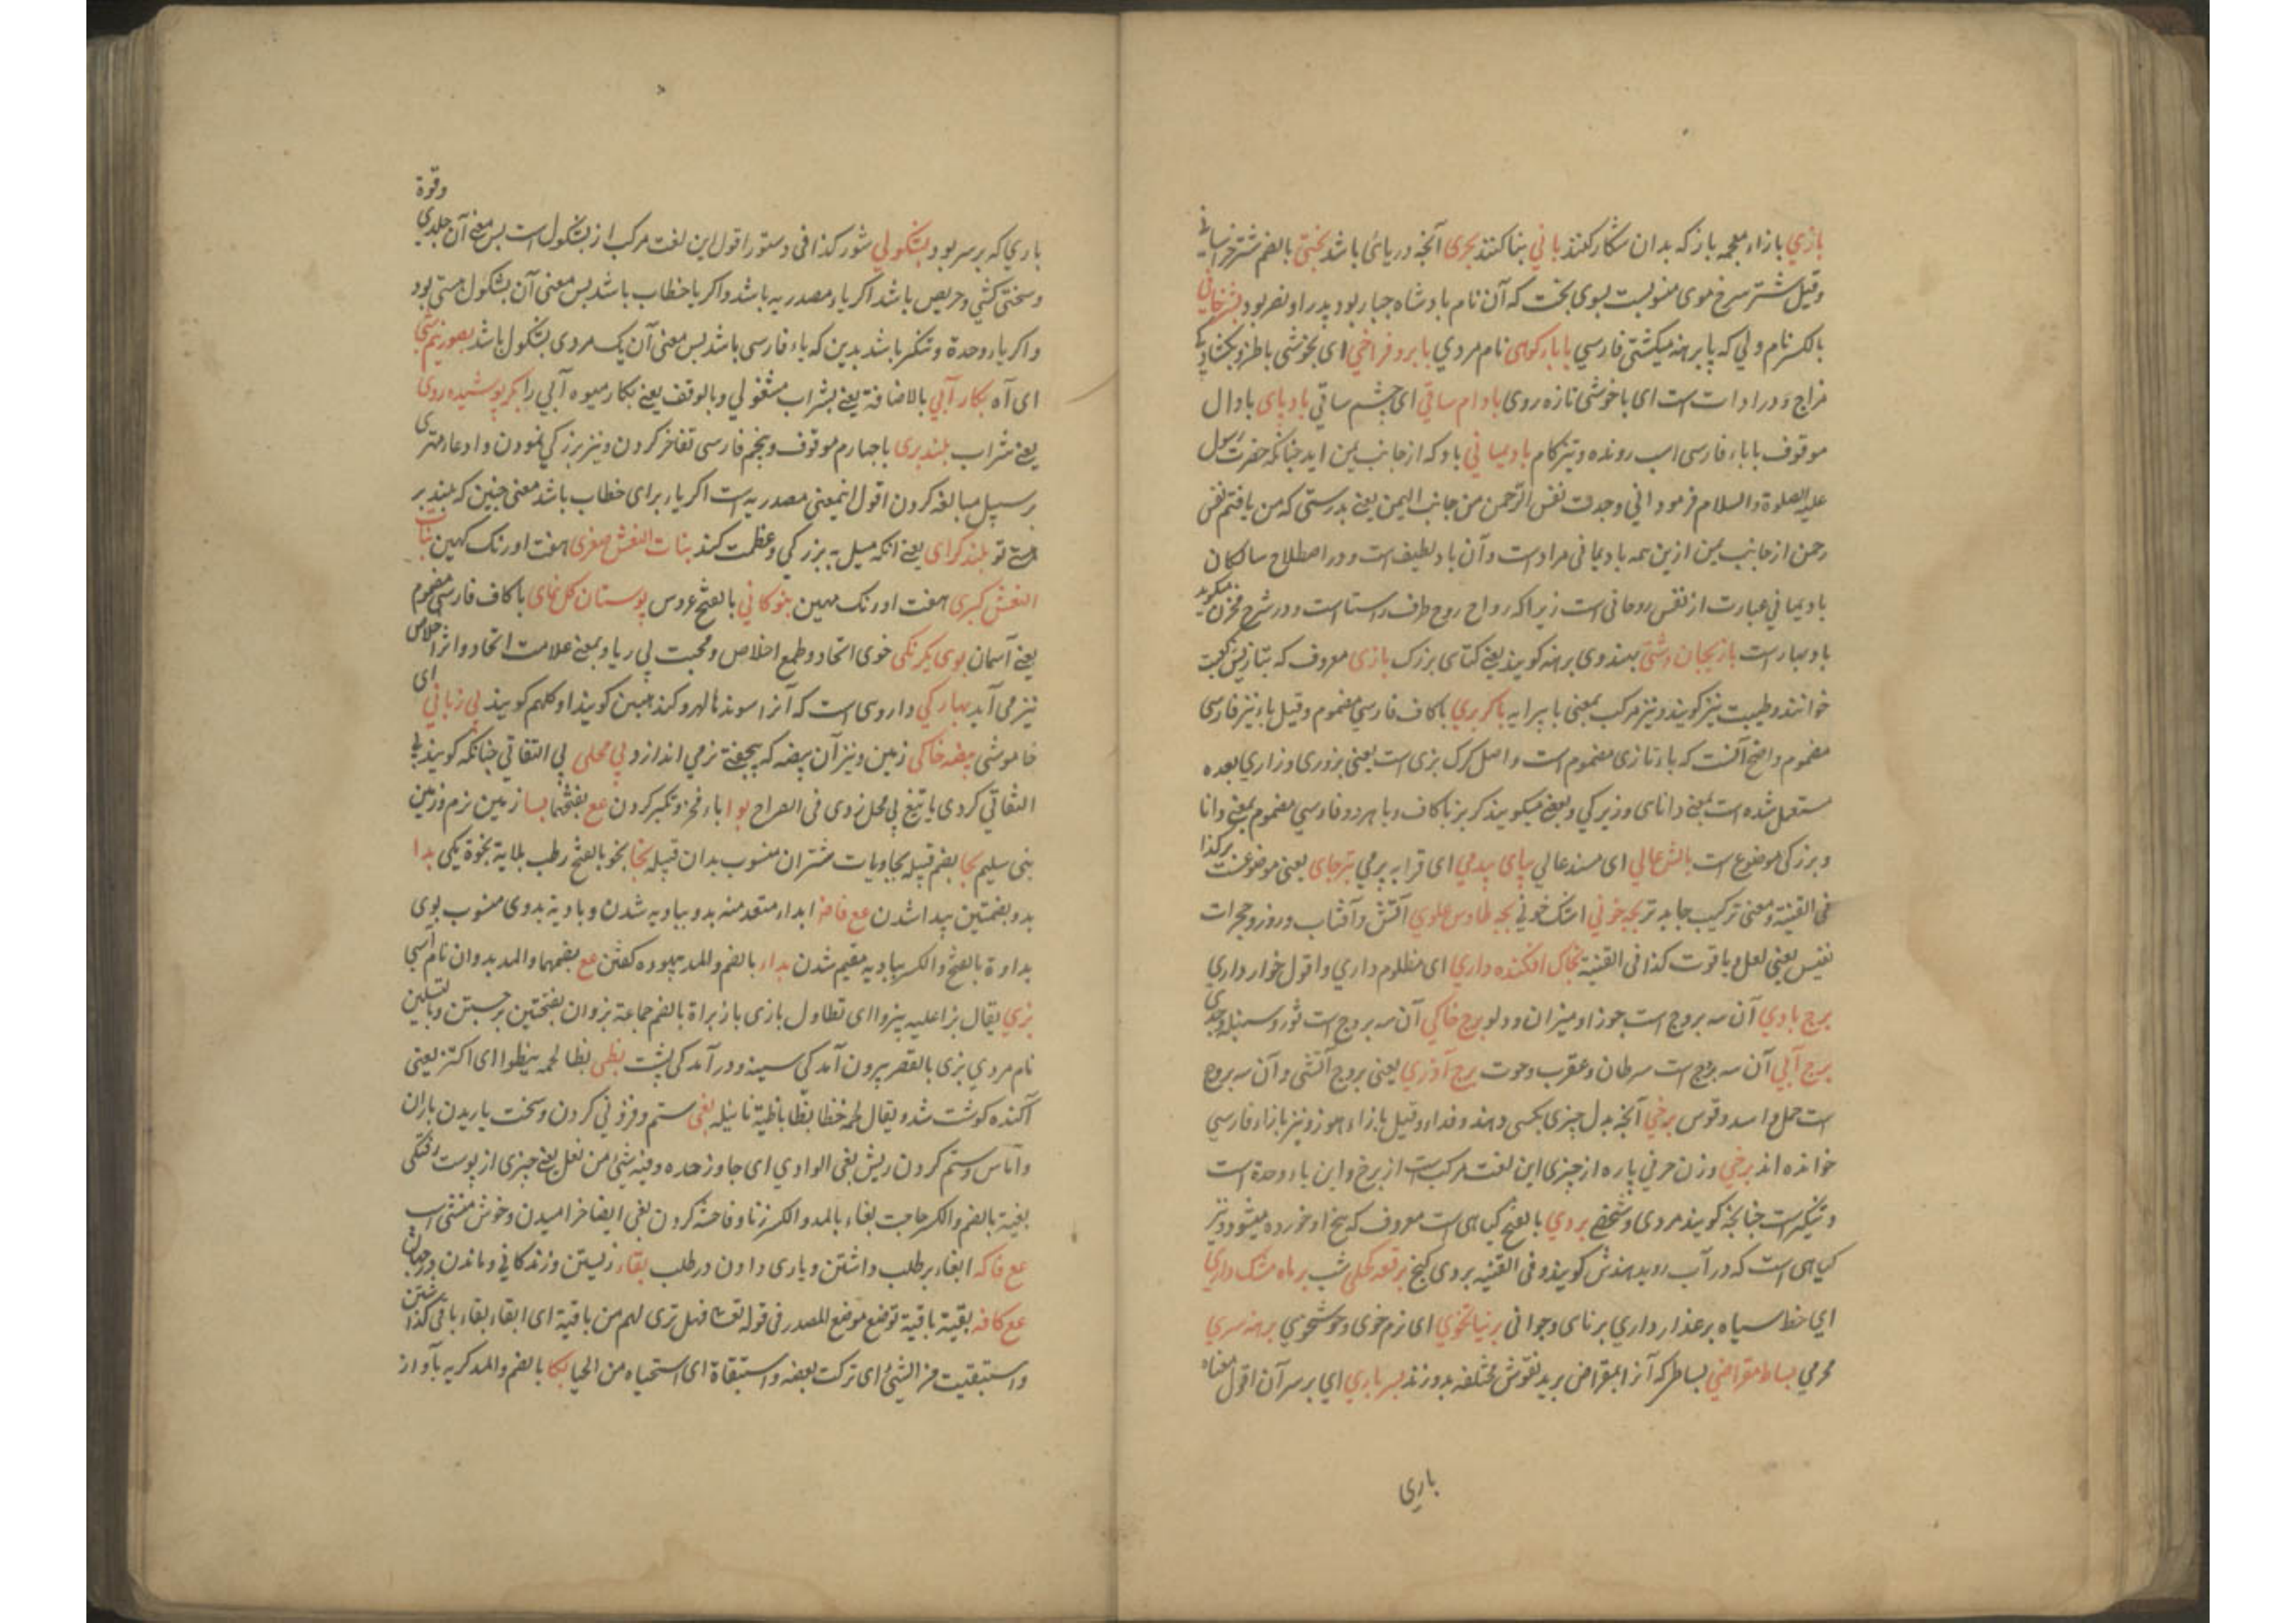 بازي بازاء معجمه باز که بدان شکار کنند باني بنا کنند بحری آنچه دریائی باشد بختي بالضم شتر خراسانی
وقیل شتر سرخ موی منسوبست بسوی بخت که آن نام بادشاه جبار بود پدر او نصر بود
بالکسر نام ولي که پا برهنه میکشتی فارسي نام مردي بابرو فراخي ای بخوشی
مزاج و در ادات است ای باخوشی تازه روی بادام ساقي ای چشم ساقي بادپای بادال
موقوف باباء فارسی اسب رونده و تیزکام باد یماني باد که از جانب یمن اید چنانکه حضرت رسول
علیه الصلوة والسلام فرمود اني وجدت نفس الرحمن من جانب الیمن یعنے بدرستی که من یافتم نفس
رحمن از جانب یمن ازین همه باد یمانی مراد است و آن باد لطیف است و در اصطلاح سالکان
باد یماني عبارت از نفس روحانی است زیراکه رواح روح طرف راستا است و در شرح مخزن میکوید
باد بهار است بادنجان دشتی بهندوی برهنه کویند یعنے کتای بزرک بازی معروف که بتازیش لعب
خوانند و طیبت نیز کویند و نیز مرکب بمعنی با پیرایه باکربري باکاف فارسي مضموم وقیل باء نیز فارسی
مضموم و اضح آنست که باء تازی مضموم است و اصل کرک بزی است یعنی بزوری و زاري بعده
مستعمل شده است بمعنے دانای و زیرکي و بعضے میکویند کربز باکاف و با هر دو فارسي مضموم بمعنی دانا
و بزرکی موضوع است بالش عالي ای مسند عالي بپای پیدمي ای قرابه پر مي بترجای یعنی موضع نشست برکذا
فی القنیة و معنی ترکیب جایه تر بچه خوني اشک خونے بچه طاوس علوي آتش و آفتاب و روز و حجرات
نفیس یعنی لعل و یاقوت کذا فی القنیة بخاک افکنده داري ای مظلوم داري و اقول خوار داري
برج بادي آن سه بروج است جوزا و میزان و دلو برج خاکي آن سه بروج است ثور و سنبله و جدی
برج آبي آن سه بروج است سرطان و عقرب و حوت برج آذري یعنی بروج آتشی و آن سه بروج
است حمل و اسد و قوس برخي آنچه بدل چیزی بکسی دهند و فداء وقیل بازاء هوز و نیز بازاء فارسي
خوانده اند برخي وزن حرفي پاره از چیزی این لغت مرکب است از برخ و این یاء وحدة است
و تنکیر است چنانچه کویند مردی و شخصے بردي بالفتح کیاهی است معروف که بیخ او خورده میشود و نیز
کیاهی است که در آب روید و فی القنیة بردی کنج برقعه کحلی شب بر ماه مشک داري
اي خط سیاه بر عذار داري برنای و جوانی پرنیا خوي ای نرم خوی و خوشخوي برهنه سري
محرمي بساط مقراضي بساط که آنرا بمقراض برید نقوش مختلفه بدوزند بسر باري اي بر سر آن اقول معناه
باری
وقوة
باري که بر سر بود بشکولي شور کذا فی دستور اقول این لغت مرکب از بشکول است بس معنی آن جلدي
و سختی کشي و حریص باشد اکر یاء مصدریه باشد و اکر یا خطاب باشد بس معنی آن بشکول هستی بود
و اکر یاء وحدة و تنکیر باشد بدین که باء فارسی باشد بس معنی آن یک مردی بشکول باشد
ای آه بکار آبي بالاضافة یعنے بشراب مشغولي و بالوقف یعنے بکار میوه آبي را بکر پوشیده روی
یعنے شراب بلند بری باچهارم موقوف و پنجم فارسی تفاخر کردن و نیز بزرکی نمودن و ادعا مهتری
بر سبیل مبالغه کردن اقول اینمعنی مصدریه است اکر یاء برای خطاب باشد معنی چنین که بلند بر
هستے تو بلند کرای یعنے انکه میل به بزرکی و عظمت کند بنات النعش صغری هفت اورنک کهین بنات
النعش کبری هفت اورنک مهین بنو کاني بالفتح عروس بوستان کل نمای باکاف فارسی مضموم
یعنے آسمان بوی یکرنکی خوی اتحاد و طمع اخلاص و محبت بي ریا و بمعنے علامت اتحاد و اثر اخلاص
نیز می آید بهارکي داروی است که آنرا کویند بي زباني ای
خاموشی بیضه خاکی زمین و نیز آن بیضه که اندازد بي محلی بي التفاتي چنانکه کویند بي
التفاتي کردی یا تیغ بي محل زدی فی الصراح بوا باء فخر و تکبر کردن مع بفتحهما بسا زمین نرم و زمین
بنی سلیم بجا بضم قبیله بجاویات شتران منسوب بدان قبیله بخا بخو بالفتح رطب بلایة بخوة یکی بدا
بدو بضمتین پیدا شدن مع فافه ابداء متعد منه بدو ببادیه شدن و بادیة بدوی منسوب بوی
بداوة بالفتح والکسر ببادیه مقیم شدن بداء بالضم والمد بیهوده کفتن مع بضمهما والمد بدوان نام اسپی
بزي یقال بزا علیه یبزوا ای تطاول بازی باز بزاة بالضم جماعة بزوان بفتحتین برجستن و بالتسکین
نام مردي بزی بالقصر بیرون آمدکی سینه و درآمدکی پشت بظی بظا لحمه یبظوا ای اکتنز یعنی
آکنده کوشت شد و یقال لحمه خظا بظا باظیة تانیثه بغی ستم و فزونی کردن و سخت باریدن باران
و آماس و ستم کردن ریش بغی الوادي ای جاوز حده و فیه شئ من نغل یعنے چیزی از پوست رفتکی
بغیة بالضم والکسر حاجت بغاء بالمد والکسر زنا و فاحشة کردن بغی ایضا خرامیدن و خوش منشی اسب
مع فاکه ابغاء بر طلب داشتن و یاری دادن در طلب بقاء زیستن و زندکاني و ماندن در جهان
مع کافه بقیة باقیة توضع موضع المصدر فی قوله تع فهل تری لهم من باقیة ای ابقاء بقاء باقی کذاشتن
واستبقیت من الشئ ای ترکت بعضه واستبقاة ای استحیاه من الحیا بکا بالضم والمد کریه بآواز